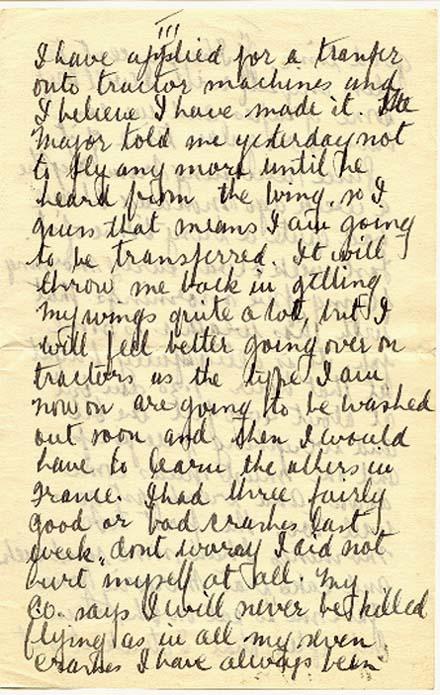 III
I have applied for a tranfer
onto tractor machines and
I believe I have made it. The
Major told me yesterday not
to fly any more until he
heard from the wing, so I
guess that means I am going
to be transferred. It will
throw me back in getting
my wings quite a lot, but I
will feel better going over on
tractors as the type I am
now on are going to be washed
out soon and then I would
have to learn the others in
France. I had three fairly
good or bad crashes last
week, dont worry I did not
hurt myself at all. My
C.O. says I will never be killed
flying as in all my seven
crashes I have always been